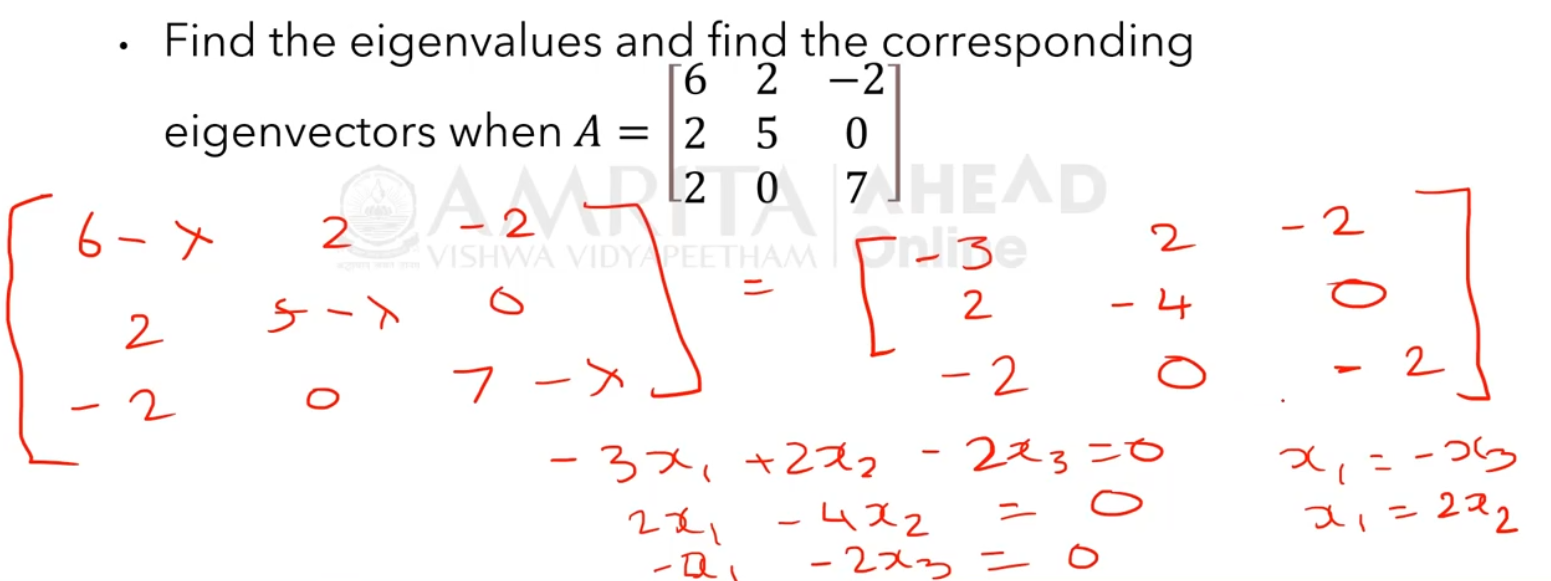 • Find the eigenvalues and find the corresponding
eigenvectors when A = [6 2 −2
2 5 0
2 0 7]
AMRITA AHEAD
VISHWA VIDYAPEETHAM Online
[6 - λ 2 - 2
2 5 - λ 0
- 2 0 7 - λ]
=
[- 3 2 - 2
2 - 4 0
- 2 0 - 2]
- 3x₁ + 2x₂ - 2x₃ = 0
2x₁ - 4x₂ = 0
- 2x₃ = 0
x₁ = - x₃
x₁ = 2x₂